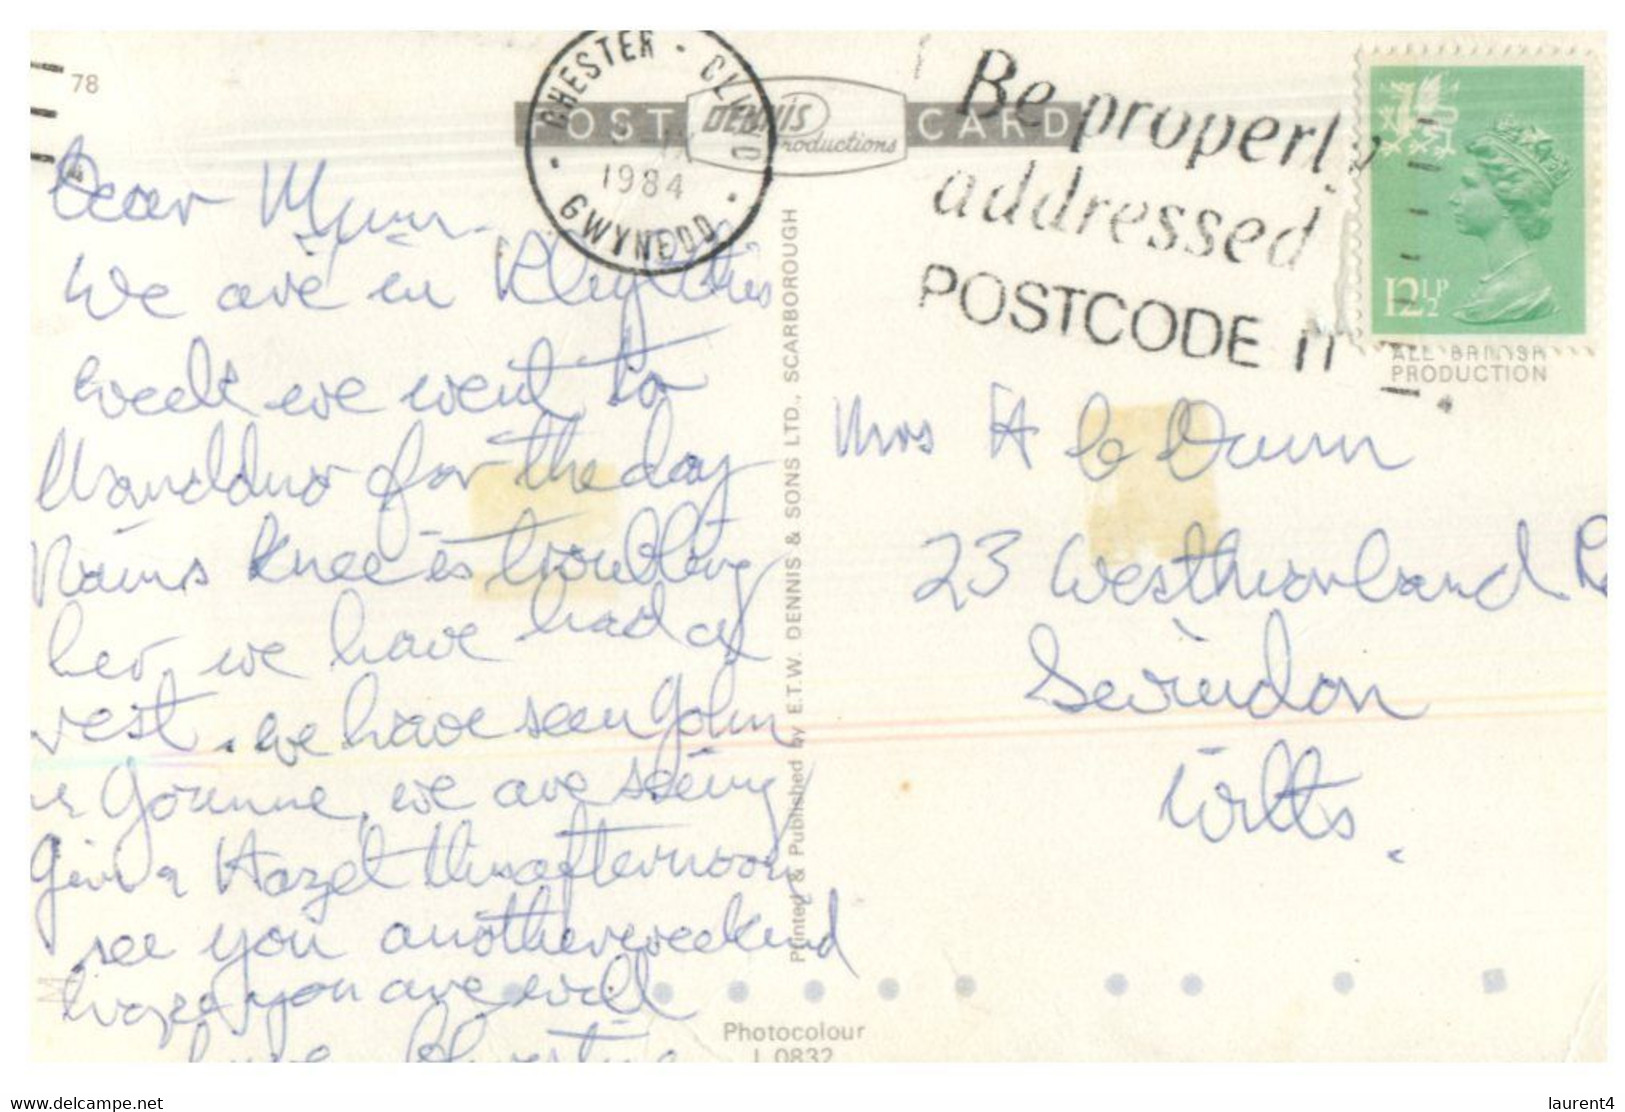 78
POST DENNIS Productions CARD
CHESTER · CLWYD · GWYNEDD ·
1984
Be properly
addressed
POSTCODE IT
12½P
ALL BRITISH
PRODUCTION
Dear Mum.
We are in Rhyl this
week we went to
Llandduo for the day
Nains Knee is troubling
her, we have had a
rest. we have seen John
Gorunne, we are seeing
Hazel this afternoon
see you another weekend
hope you are well
love
Mrs H Le Dunn
23 Westmorland R
Swindon
Wilts.
Printed & Published by E.T.W. DENNIS & SONS LTD., SCARBOROUGH
M
Photocolour
L 0832
www.delcampe.net
laurent4